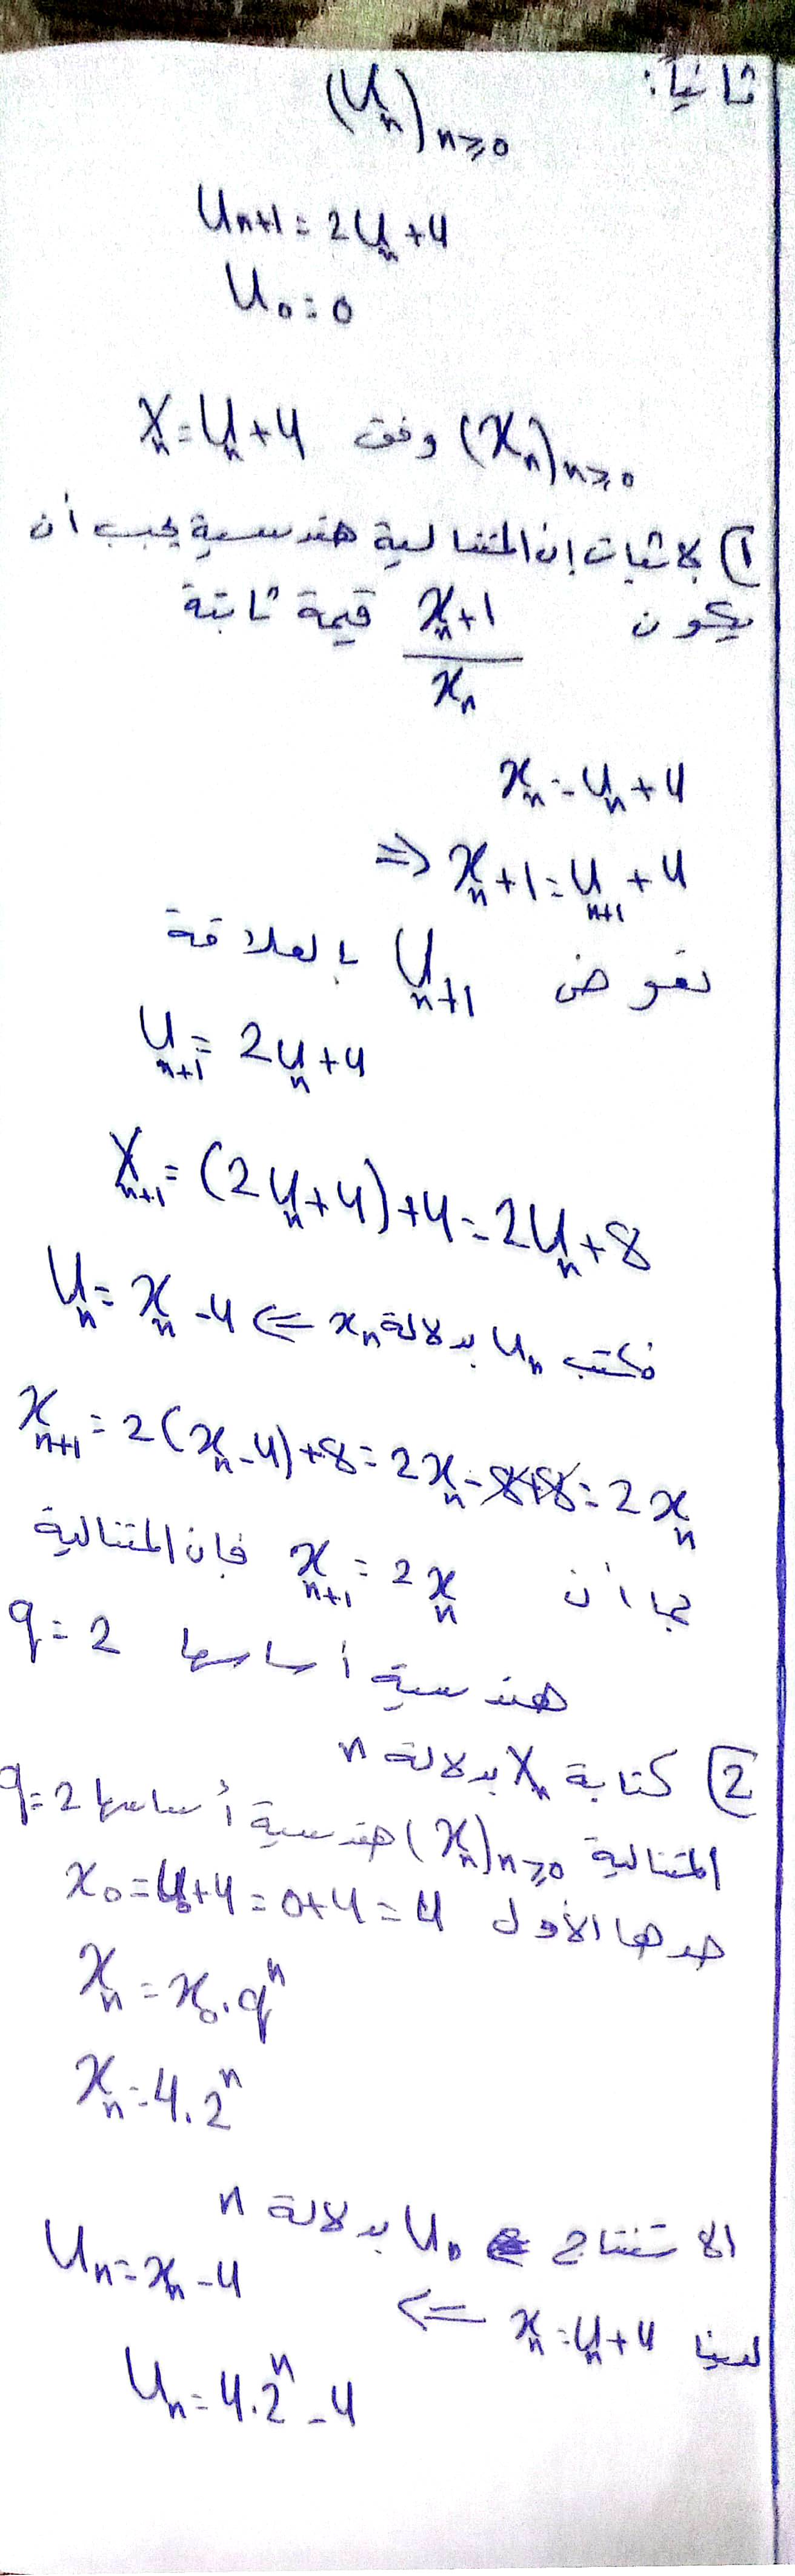 ثانياً:
(Uₙ)ₙ≥₀
Uₙ₊₁ = 2Uₙ + 4
U₀ = 0
(xₙ)ₙ≥₀ وفق xₙ = Uₙ + 4
① لاثبات إن المتتالية هندسية يجب أن
يكون xₙ+1 / xₙ قيمة ثابتة
xₙ = Uₙ + 4
⇒ xₙ+1 = Uₙ₊₁ + 4
نعوض Uₙ₊₁ بالعلاقة
Uₙ₊₁ = 2Uₙ + 4
xₙ₊₁ = (2Uₙ + 4) + 4 = 2Uₙ + 8
نكتب Uₙ بدلالة xₙ ⇐ Uₙ = xₙ - 4
xₙ₊₁ = 2(xₙ - 4) + 8 = 2xₙ - 8 + 8 = 2xₙ
بما أن xₙ₊₁ = 2xₙ فإن المتتالية
هندسية أساسها q = 2
② كتابة xₙ بدلالة n
المتتالية (xₙ)ₙ≥₀ هندسية أساسها q = 2
حدها الأول x₀ = U₀ + 4 = 0 + 4 = 4
xₙ = x₀ . qⁿ
xₙ = 4 . 2ⁿ
الاستنتاج Uₙ بدلالة n
لدينا xₙ = Uₙ + 4 ⇐ Uₙ = xₙ - 4
Uₙ = 4 . 2ⁿ - 4